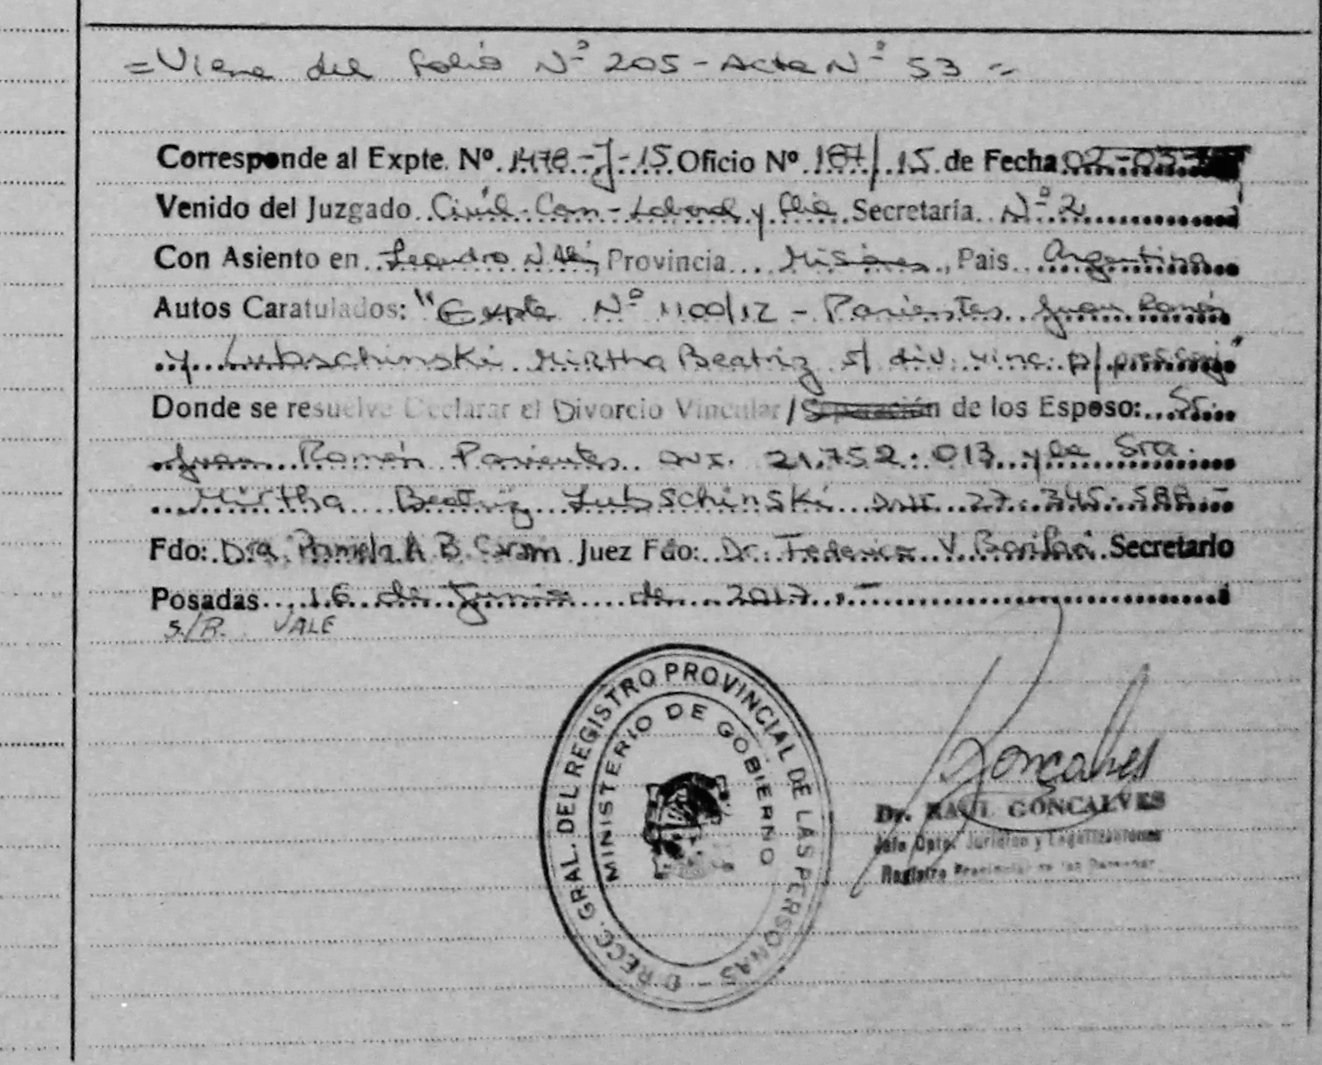 =Viene del folio Nº 205 - Acta Nº 53 =
Corresponde al Expte. Nº 1478-J-15 Oficio Nº 187/15 de Fecha 02-03-
Venido del Juzgado Civil-Com-Laboral y flia Secretaría Nº 2
Con Asiento en Leandro N. Alem, Provincia Misiones, Pais Argentina
Autos Caratulados: "Expte Nº 1100/12 - Parientes Juan Ramón
y Lubaschinski Mirtha Beatriz s/ div. vinc. p/ pres. conj"
Donde se resuelve Declarar el Divorcio Vincular/Separación de los Esposo: Sr.
Juan Ramón Parientes DNI. 21.752.013 y la Sra.
Mirtha Beatriz Lubaschinski DNI 27.345.588.-
Fdo: Dra. Pamela A. B. Juez Fdo: Dr. Federico V. Secretario
Posadas, 16 de Junio de 2017.-
S/R. VALE
DIRECC. GRAL. DEL REGISTRO PROVINCIAL DE LAS PERSONAS -
MINISTERIO DE GOBIERNO
Gonçalves
Dr. RAUL GONÇALVES
Jefe Dpto. Jurídico y Legalizaciones
Registro Provincial de las Personas